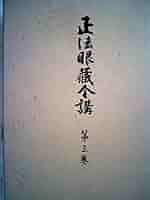 正法眼藏全講
第三巻